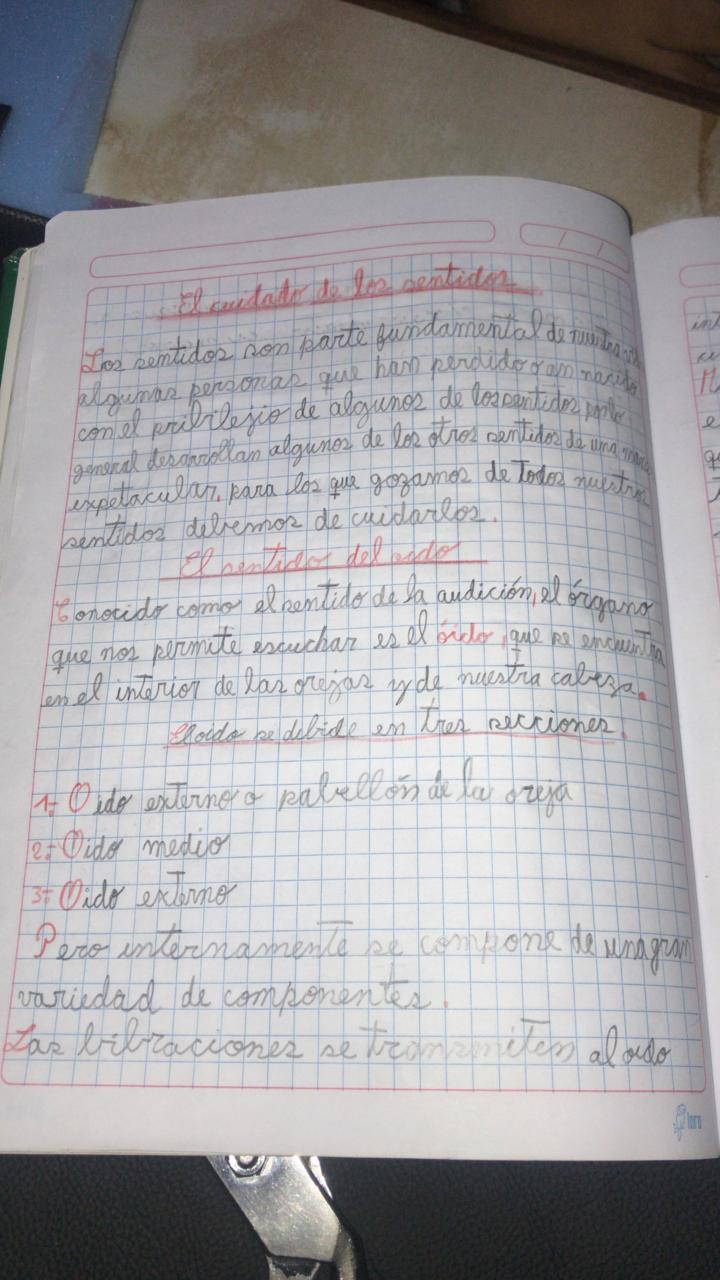 El cuidado de los sentidos
Los sentidos son parte fundamental de nuestra
algunas personas que han perdido o an nacido
con el pribilejio de algunos de los sentidos por lo
general desarrollan algunos de los otros sentidos de una
expetacular. para los que gozamos de todos nuestros
sentidos debemos de cuidarlos.
El sentido del oido
Conocido como el sentido de la audición, el órgano
que nos permite escuchar es el óido, que se encuentra
en el interior de las orejas y de nuestra cabeza.
El oido se dibide en tres secciones.
1- Oido externo o pabellón de la oreja
2- Oido medio
3- Oido externo
Pero internamente se compone de una gran
variedad de componentes.
Las bibraciones se transmiten al oido
loro